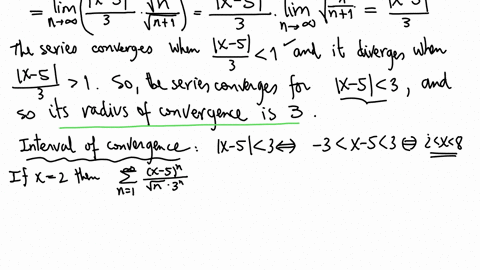 = lim n→∞ (|x-5|/3 · √n/√(n+1)) = |x-5|/3 · lim n→∞ √(n/(n+1)) = |x-5|/3
The series converges when |x-5|/3 < 1 and it diverges when
|x-5|/3 > 1. So, the series converges for |x-5| < 3, and
so its radius of convergence is 3.
Interval of convergence: |x-5| < 3 ⇔ -3 < x-5 < 3 ⇔ 2 < x < 8
If x=2 then ∑ n=1 ∞ (x-5)^n / (√n · 3^n)